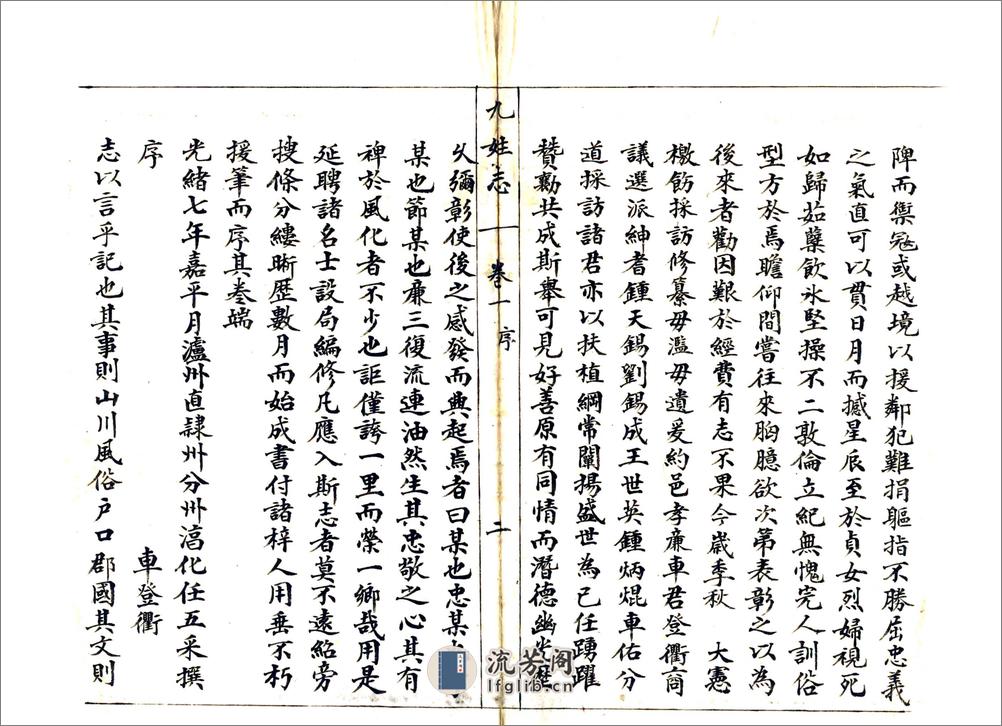 陴而禦寇或越境以援鄰犯難捐軀指不勝屈忠義
之氣直可以貫日月而撼星辰至於貞女烈婦視死
如歸茹蘗飲氷堅操不二敦倫立紀無愧完人訓俗
型方於焉瞻仰間嘗往來胸臆欲次第表彰之以為
後來者勸因艱於經費有志不果今歲季秋 大憲
檄飭採訪修纂毋濫毋遺爰約邑孝廉車君登衢商
議選派紳耆鍾天錫劉錫成王世英鍾炳焜車佑分
道採訪諸君亦以扶植綱常闡揚盛世為已任踴躍
贊勷共成斯舉可見好善原有同情而潛德幽光歷
九姓志 卷一 序 二
乆彌彰使後之感發而興起焉者曰某也忠某
某也節某也廉三復流連油然生其忠敬之心其有
裨於風化者不少也詎僅誇一里而榮一鄉哉用是
延聘諸名士設局編修凡應入斯志者莫不遠紹旁
搜條分縷晰歷數月而始成書付諸梓人用垂不朽
援筆而序其巻端
光緒七年嘉平月瀘州直隷州分州湻化任五采撰
序 車登衢
志以言乎記也其事則山川風俗戶口郡國其文則
流芳阁
lfglib.cn